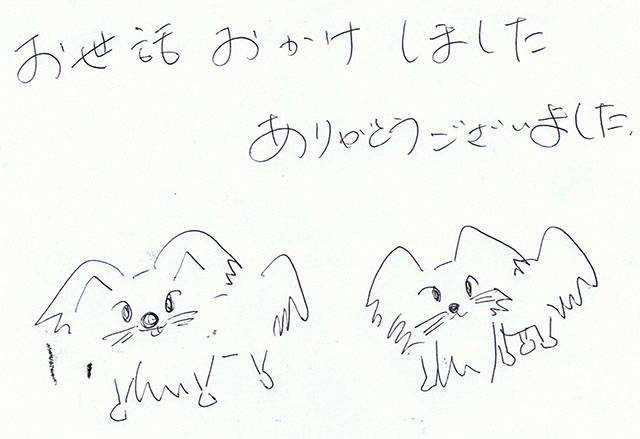 お世話 おかけ しました
ありがとうございました.